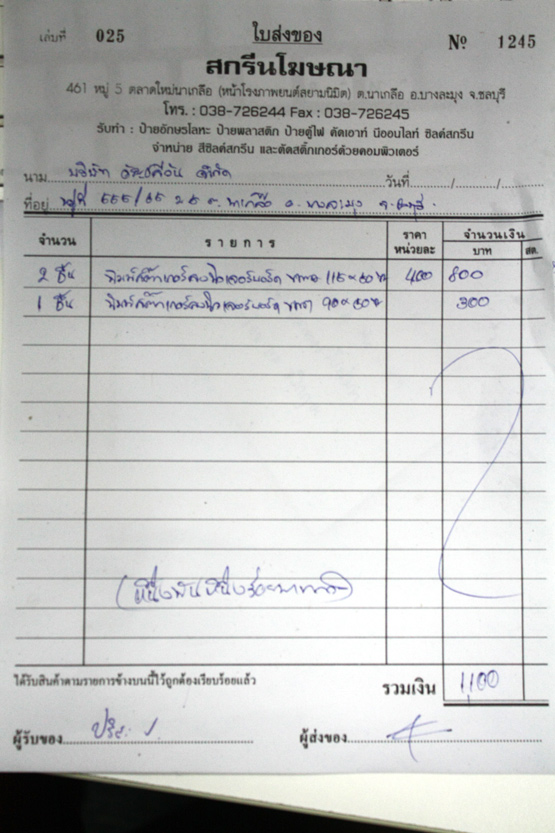 เล่มที่ 025 ใบส่งของ Nº 1245
สกรีนโฆษณา
461 หมู่ 5 ตลาดใหม่นาเกลือ (หน้าโรงภาพยนต์สยามนิมิต) ต.นาเกลือ อ.บางละมุง จ.ชลบุรี
โทร. : 038-726244 Fax : 038-726245
รับทำ : ป้ายอักษรโลหะ ป้ายพลาสติก ป้ายตู้ไฟ คัดเอาท์ นีออนไลท์ ซิลค์สกรีน
จำหน่าย สีซิลค์สกรีน และตัดสติ๊กเกอร์ด้วยคอมพิวเตอร์
นาม บริษัท จำกัด วันที่ / /
ที่อยู่ 555/65 ต. นาเกลือ อ. บางละมุง จ. ชลบุรี
จำนวน รายการ ราคาหน่วยละ จำนวนเงิน
บาท สต.
2 ชิ้น พิมพ์สติ๊กเกอร์ลงฟิวเจอร์บอร์ด ขนาด 115 x 60 400 800
1 ชิ้น พิมพ์สติ๊กเกอร์ลงฟิวเจอร์บอร์ด ขนาด 90 x 60 300
(หนึ่งพันหนึ่งร้อยบาทถ้วน)
ได้รับสินค้าตามรายการข้างบนนี้ไว้ถูกต้องเรียบร้อยแล้ว
รวมเงิน 1,100
ผู้รับของ ผู้ส่งของ